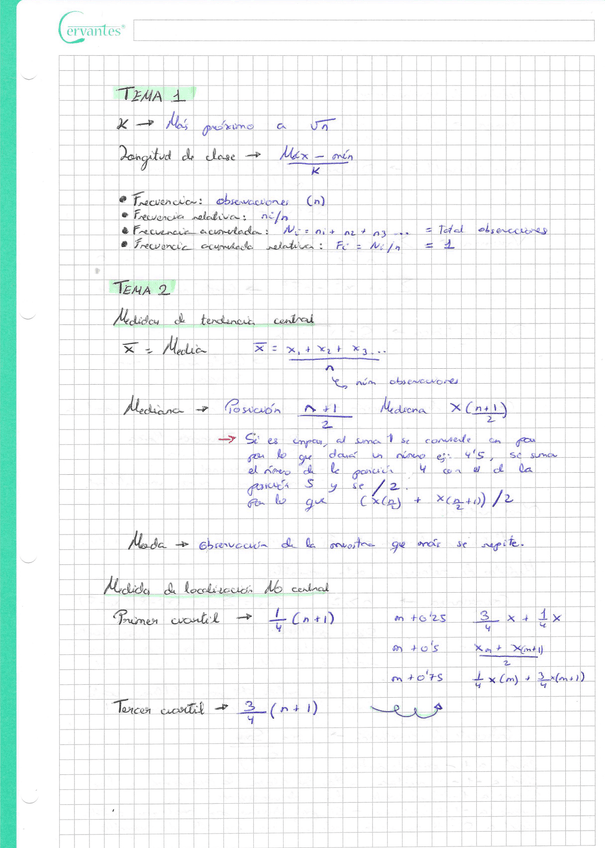 Cervantes®
TEMA 1
K → Más próximo a √n
Longitud de clase → Máx - mín / K
• Frecuencia: observaciones (n)
• Frecuencia relativa: ni/n
• Frecuencia acumulada: Ni = n1 + n2 + n3 ... = Total observaciones
• Frecuencia acumulada relativa: Fi = Ni/n = 1
TEMA 2
Medidas de tendencia central
x̄ = Media x̄ = x1 + x2 + x3 ... / n
↳ núm observaciones
Mediana → Posición n+1 / 2 Mediana x(n+1 / 2)
→ Si es impar, al suma 1 se convierte en par
por lo que dará un número ej: 4'5, se suma
el número de la posición 4 con el de la
posición 5 y se /2.
por lo que (x(n/2) + x(n/2+1)) /2
Moda → Observación de la muestra que más se repite.
Medida de localización No central
Primer cuartil → 1/4 (n+1) m+0'25 3/4 x + 1/4 x
m+0'5 xm + x(m+1) / 2
m+0'75 1/4 x(m) + 3/4 x(m+1)
Tercer cuartil → 3/4 (n+1)